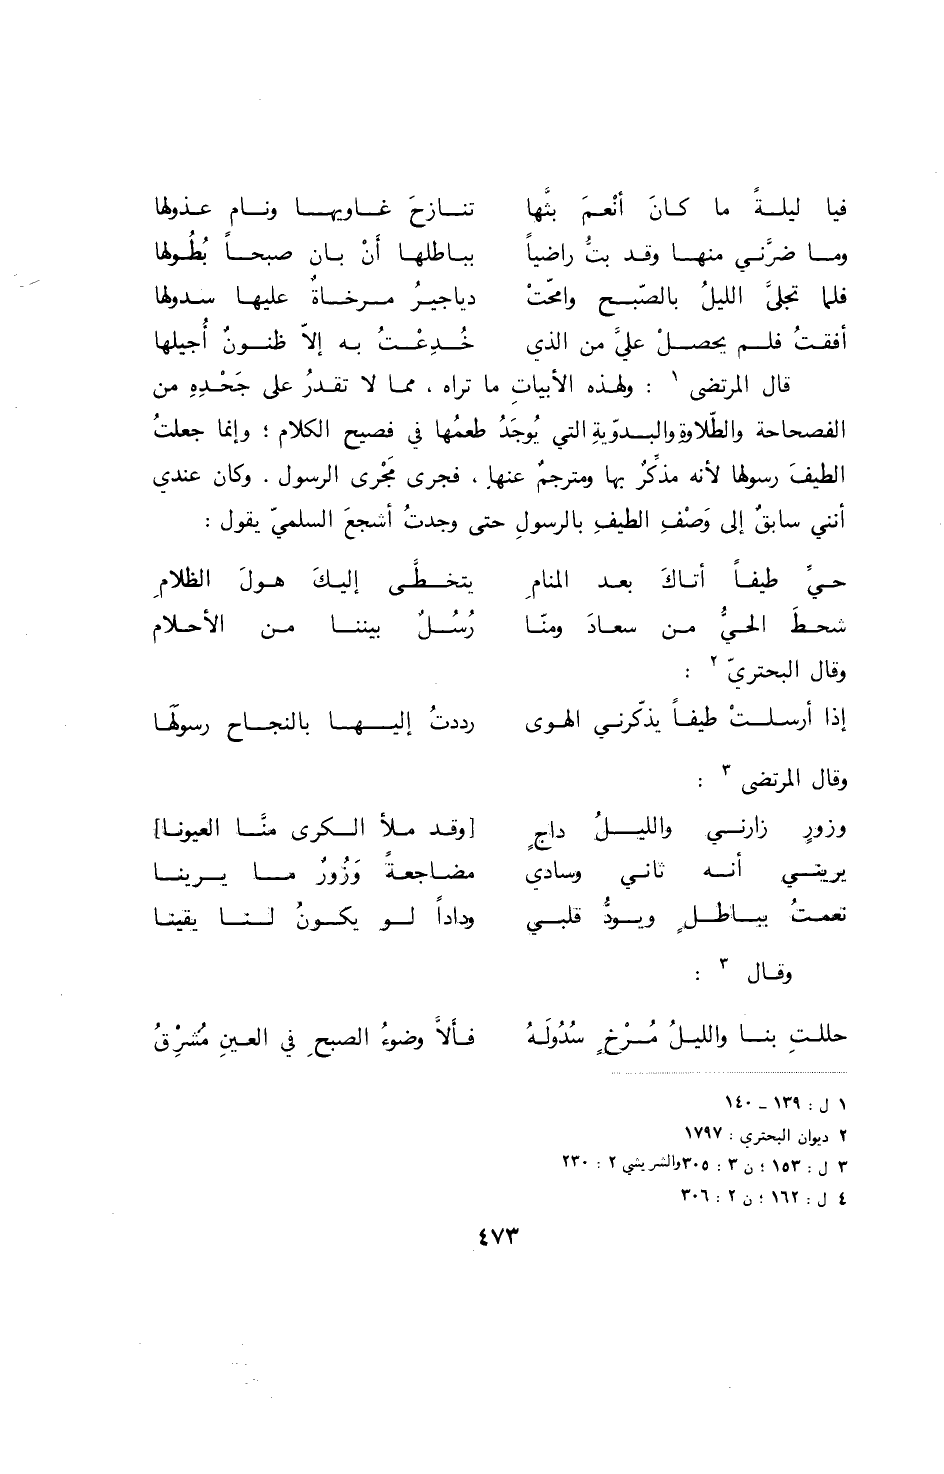 فيا ليلةً ما كانَ أنْعمَ بثَّها تنازحَ غاويها ونام عذولها
وما ضرَّني منها وقد بتُّ راضياً بباطلها أنْ بان صبحاً بُطُولها
فلما تجلىَّ الليلُ بالصّبح وامحتْ دياجيرُ مرخاةٌ عليها سدولها
أفقتُ فلم يحصلْ عليَّ من الذي خُدِعْتُ به إلاّ ظنونٌ أُجيلها
قال المرتضى ١ : ولهذه الأبياتِ ما تراه ، مما لا تقدرُ على جَحْدِهِ من
الفصحاحة والطّلاوةِ والبدوّيةِ التي يُوجَدُ طعمُها في فصيح الكلام ؛ وإنما جعلتُ
الطيفَ رسولها لأنه مذكِّرٌ بها ومترجمٌ عنها ، فجرى مَجْرى الرسول . وكان عندي
أنني سابقٌ إلى وَصْفِ الطيفِ بالرسولِ حتى وجدتُ أشجعَ السلميّ يقول :
حيِّ طيفاً أتاكَ بعد المنامِ يتخطَّى إليكَ هولَ الظلامِ
شحطَ الحيُّ من سعادَ ومنّا رُسُلٌ بيننا من الأحلام
وقال البحتريّ ٢ :
إذا أرسلتْ طيفاً يذكّرني الهوى رددتُ إليها بالنجاح رسولَها
وقال المرتضى ٣ :
وزورٍ زارني والليلُ داجٍ [وقد ملأ الكرى منَّا العيونا]
يريني أنه ثاني وسادي مضاجعةً وَزُورٌ ما يرينا
نعمتُ بباطلٍ ويودُّ قلبي وداداً لو يكونُ لنا يقينا
وقال ٣ :
حللتِ بنا والليلُ مُرْخٍ سُدُولَهُ فألاَّ وضوءُ الصبحِ في العينِ مُشرْقُ
١ ل : ١٣٩ ـ ١٤٠
٢ ديوان البحتري : ١٧٩٧
٣ ل : ١٥٣ ؛ ن ٣ : ٣٠٥ والشريشي ٢ : ٢٣٠
٤ ل : ١٦٢ ؛ ن ٢ : ٣٠٦
٤٧٣